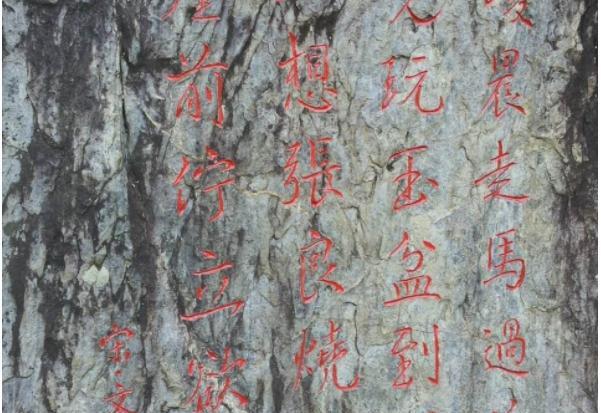 晨走馬過
玩玉盆到
想張良燒
前佇立欲
宋文